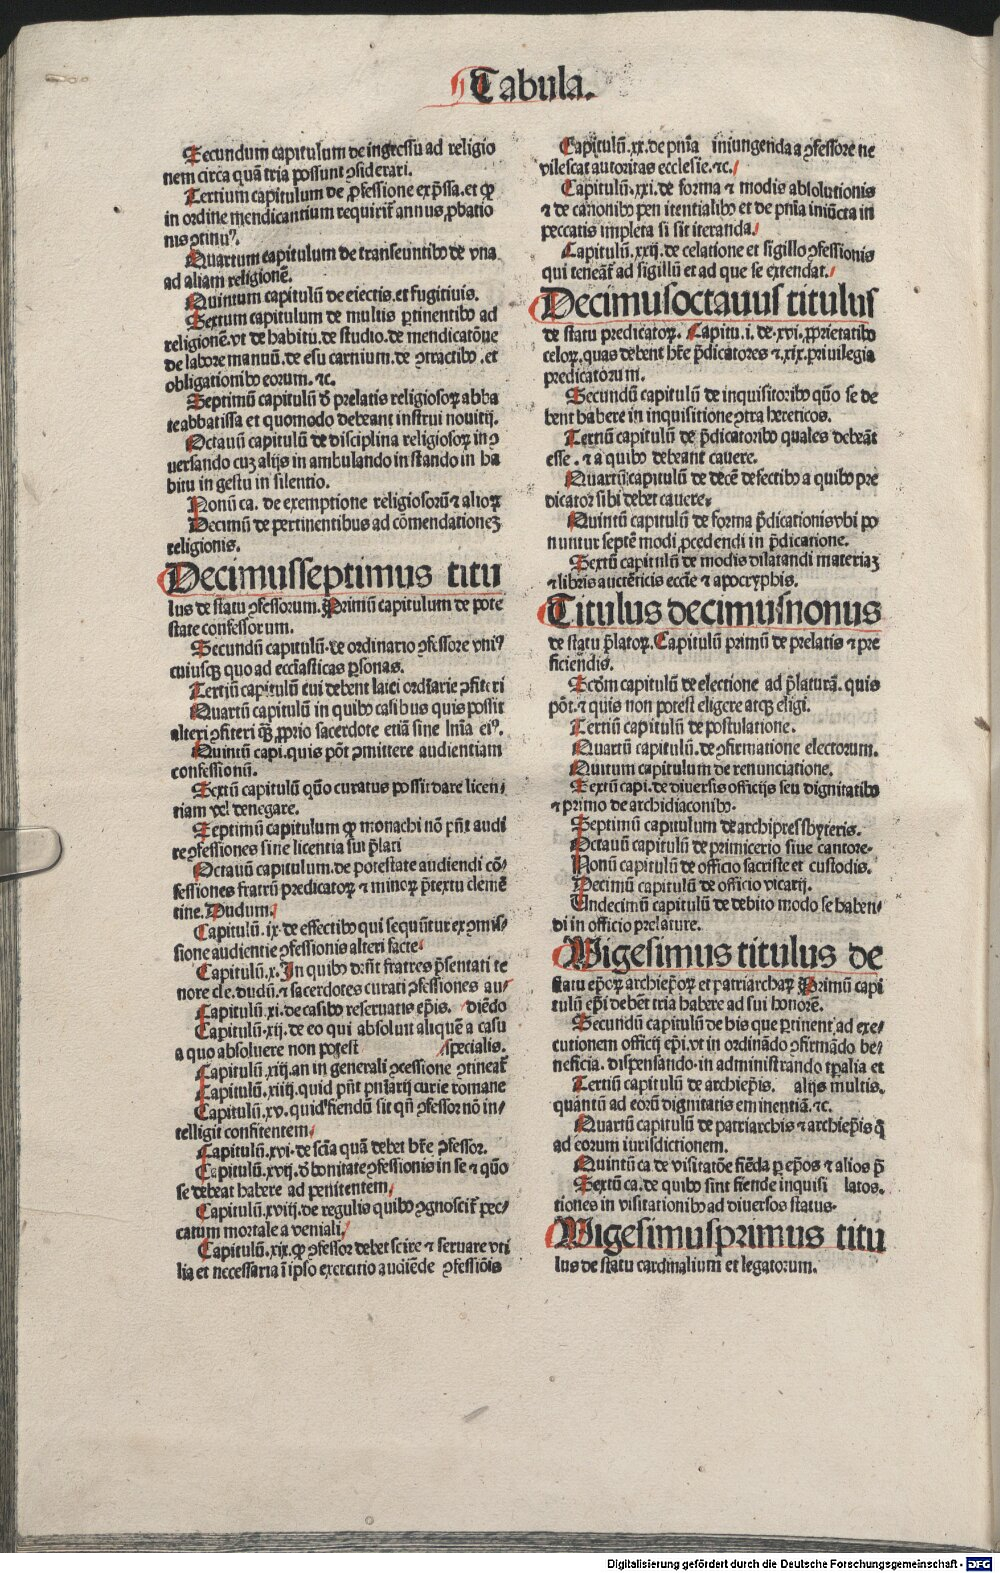 Tabula.
Secundum capitulum de ingressu ad religio
nem circa quã tria possunt ꝯsiderari.
Tertium capitulum de ꝓfessione exp̃ssa.et ꝙ
in ordine mendicantium requirit̃ annus ꝓbatio
nis ꝯtinuꝰ.
Quartum capitulum de transeuntibꝰ de vna
ad aliam religionẽ.
Quintum capitulũ de eiectis.et fugitiuis.
Sextum capitulum de multis ꝑtinentibꝰ ad
religionẽ.vt de habitu.de studio.de mendicatõne
de labore manuũ.de esu carnium.de ꝯtractibꝰ.et
obligationibꝰ eorum.⁊c.
Septimũ capitulũ ð prelatis religiosoꝝ abba
te abbatissa et quomodo debeant instrui nouitij.
Octauũ capitulũ de disciplina religiosoꝝ in ꝯ
uersando cuꝫ alijs in ambulando in stando in ha
bitu in gestu in silentio.
Nonũ ca. de exemptione religiosorũ ⁊ alioꝝ
Decimũ de pertinentibus ad cõmendationeꝫ
religionis.
Decimusseptimus titu
lus de statu ꝯfessorum. Primũ capitulum de pote
state confessorum.
Secundũ capitulũ.de ordinario ꝯfessore vniꝰ
cuiusqꝫ quo ad eccl̃iasticas ꝑsonas.
Tertiũ capitulũ cui debent laici ordĩarie ꝯfiteri
Quartũ capitulũ in quibꝰ casibus quis possit
alteri ꝯfiteri qꝫ̃ ꝓprio sacerdote etiã sine lnĩa eiꝰ.
Quintũ capi.quis põt ꝯmittere audientiam
confessionũ.
Sextũ capitulũ quõ curatus possit dare licen
tiam vel denegare.
Septimũ capitulum ꝙ monachi nõ pñt audi
re ꝯfessiones sine licentia sui p̃lati
Octauũ capitulum.de potestate audiendi cõ⸗
fessiones fratrũ predicatoꝝ ⁊ minoꝝ p̃textu clemẽ
tine.Dudum.
Capitulũ.ix.de effectibꝰ qui sequũtur ex ꝯmis⸗
sione audientie ꝯfessionis alteri facte.
Capitulũ.x.In quibꝰ dñt fratres p̃sentati te
nore cle.dudũ.⁊ sacerdotes curati ꝯfessiones au⸗
Capitulũ.xi.de casibꝰ reseruatis ep̃is. diẽdo
Capitulũ.xij.de eo qui absoluit aliquẽ a casu
a quo absoluere non potest specialis.
Capitulũ.xiij.an in generali ꝯcessione ꝯtineat̃
Capitulũ.xiiij.quid pñt pnĩarij curie romane
Capitulũ.xv.quid fiendũ sit qñ ꝯfessor nõ in⸗
telligit confitentem.
Capitulũ.xvi.de scĩa quã debet hr̃e ꝯfessor.
Capitulũ.xvij.ð bonitate ꝯfessionis in se ⁊ quõ
se debeat habere ad penitentem.
Capitulũ.xviij.de regulis quibꝰ ꝯgnoscit̃ pec⸗
catum mortale a veniali.
Capitulũ.xix.ꝙ ꝯfessor debet scire ⁊ seruare vti
lia et necessaria ĩ ipso exercitio audiẽde ꝯfessiõis
Capitulũ.xx.de pnĩa iniungenda a ꝯfessore ne
vilescat autoritas ecclesie.⁊c.
Capitulũ.xxi.de forma ⁊ modis absolutionis
⁊ de canonibꝰ penitentialibꝰ et de pnĩa iniũcta in
peccatis impleta si sit iteranda.
Capitulũ.xxij.de celatione et sigillo ꝯfessionis
qui teneat̃ ad sigillũ et ad que se extendat.
Decimusoctauus titulus
de statu predicatoꝝ. Capitu.i.de.xvi.ꝓprietatibꝰ
celoꝝ.quas debent hr̃e p̃dicatores ⁊.xix.priuilegia
predicatorum.
Secundũ capitulũ de inquisitoribꝰ quõ se de
bent habere in inquisitione ꝯtra hereticos.
Tertiũ capitulũ de p̃dicatoribꝰ quales debeãt
esse.⁊ a quibꝰ debeant cauere.
Quartũ capitulũ de decẽ defectibꝰ a quibꝰ pre
dicator sibi debet cauere.
Quintũ capitulũ de forma p̃dicationis vbi po
nuntur septẽ modi ꝓcedendi in p̃dicatione.
Sextũ capitulũ de modis dilatandi materiaꝫ
⁊ libris autẽticis eccĩe ⁊ apocryphis.
Titulus decimusnonus
de statu p̃latoꝝ.Capitulũ primũ de prelatis ⁊ pre
ficiendis.
Scdm̃ capitulũ de electione ad p̃laturã. quis
põt.⁊ quis non potest eligere atqꝫ eligi.
Tertiũ capitulũ de postulatione.
Quartũ capitulũ.de ꝯfirmatione electorum.
Quitum capitulum de renunciatione.
Sextũ capi.de diuersis officijs seu dignitatibꝰ
⁊ primo de archidiaconibꝰ.
Septimũ capitulum de archipresbyteris.
Octauũ capitulũ de primicerio siue cantore.
Nonũ capitulũ de officio sacriste et custodis.
Decimũ capitulũ de officio vicarij.
Undecimũ capitulũ de debito modo se haben⸗
di in officio prelature.
Vigesimus titulus de
statu ep̃oꝝ archiep̃oꝝ et patriarchaꝝ Primũ capi
tulũ ep̃i debẽt tria habere ad sui honorẽ.
Secundũ capitulũ de his que ꝑtinent ad exe⸗
cutionem officij ep̃i.vt in ordinãdo ꝯfirmãdo be⸗
neficia.dispensando.in administrando tꝑalia et
Tertiũ capitulũ de archiep̃is. alijs multis.
quantũ ad eorũ dignitatis eminentiã.⁊c.
Quartũ capitulũ de patriarchis ⁊ archiep̃is q̃
ad eorum iurisdictionem.
Quintũ ca de visitatõe fiẽda ꝑ ep̃os ⁊ alios p̃
Sextũ ca.de quibꝰ sint fiende inquisi latos.
tiones in visitationibꝰ ad diuersos status.
Vigesimusprimus titu
lus de statu cardinalium et legatorum.
Digitalisierung gefördert durch die Deutsche Forschungsgemeinschaft - DFG